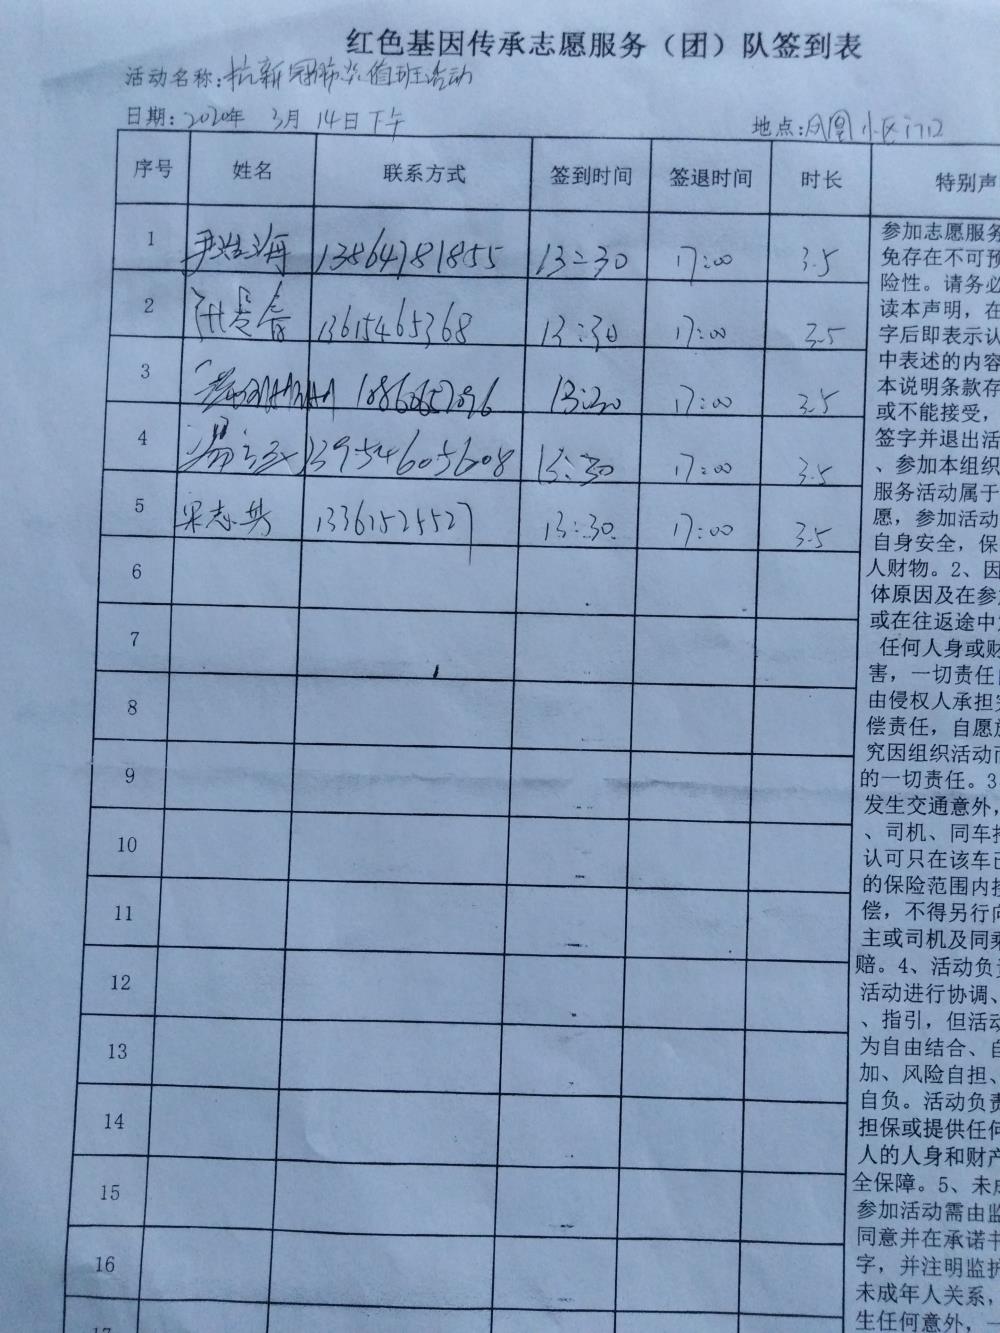 红色基因传承志愿服务（团）队签到表
活动名称：抗新冠肺炎值班活动
日期：2020年 3月 14日下午
地点：凤凰小区门口
序号 姓名 联系方式 签到时间 签退时间 时长 特别声
1 13864781855 13:30 17:00 3.5
2 13615465368 13:30 17:00 3.5
3 13:30 17:00 3.5
4 13954605608 13:30 17:00 3.5
5 梁志英 13361525527 13:30 17:00 3.5
6
7
8
9
10
11
12
13
14
15
16
17
参加志愿服务
免存在不可预
险性。请务必
读本声明，在
字后即表示认
中表述的内容
本说明条款存
或不能接受，
签字并退出活
、参加本组织
服务活动属于
愿，参加活动
自身安全，保
人财物。2、因
体原因及在参
或在往返途中
任何人身或财
害，一切责任
由侵权人承担
偿责任，自愿放
究因组织活动而
的一切责任。3
发生交通意外，
、司机、同车
认可只在该车已
的保险范围内
偿，不得另行向
主或司机及同乘
赔。4、活动负责
活动进行协调、
、指引，但活动
为自由结合、自
加、风险自担、
自负。活动负责
担保或提供任何
人的人身和财产
全保障。5、未成
参加活动需由监
同意并在承诺书
字，并注明监护
未成年人关系，
生任何意外，一